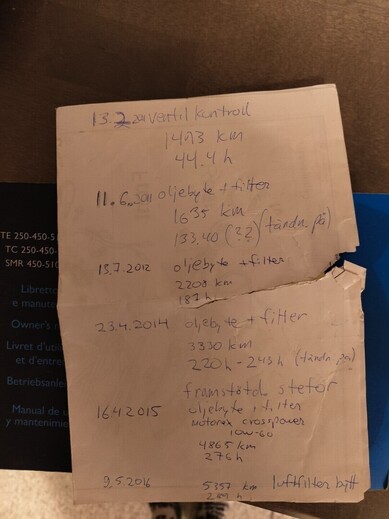 13.2 2011 ventil kontroll
1493 km
44.4 h
11.6.2011 oljebyte + filter
1635 km
133,40 (??) (tändn på)
13.7.2012 oljebyte + filter
2200 km
187 h
23.4.2014 oljebyte + filter
3330 km
220h - 243h (tändn på)
framstötd
16.4.2015 oljebyte + filter
Motorex crosspower
10W-60
4865 km
276 h
9,5.2016 5357 km luftfilter bytt
289 h
TE 250-450-5
TC 250-450-
SMR 450-510
Libretto
e manute
Owner's
Livret d'util
et d'entre
Betriebsanle
Manual de u
y mantenimie